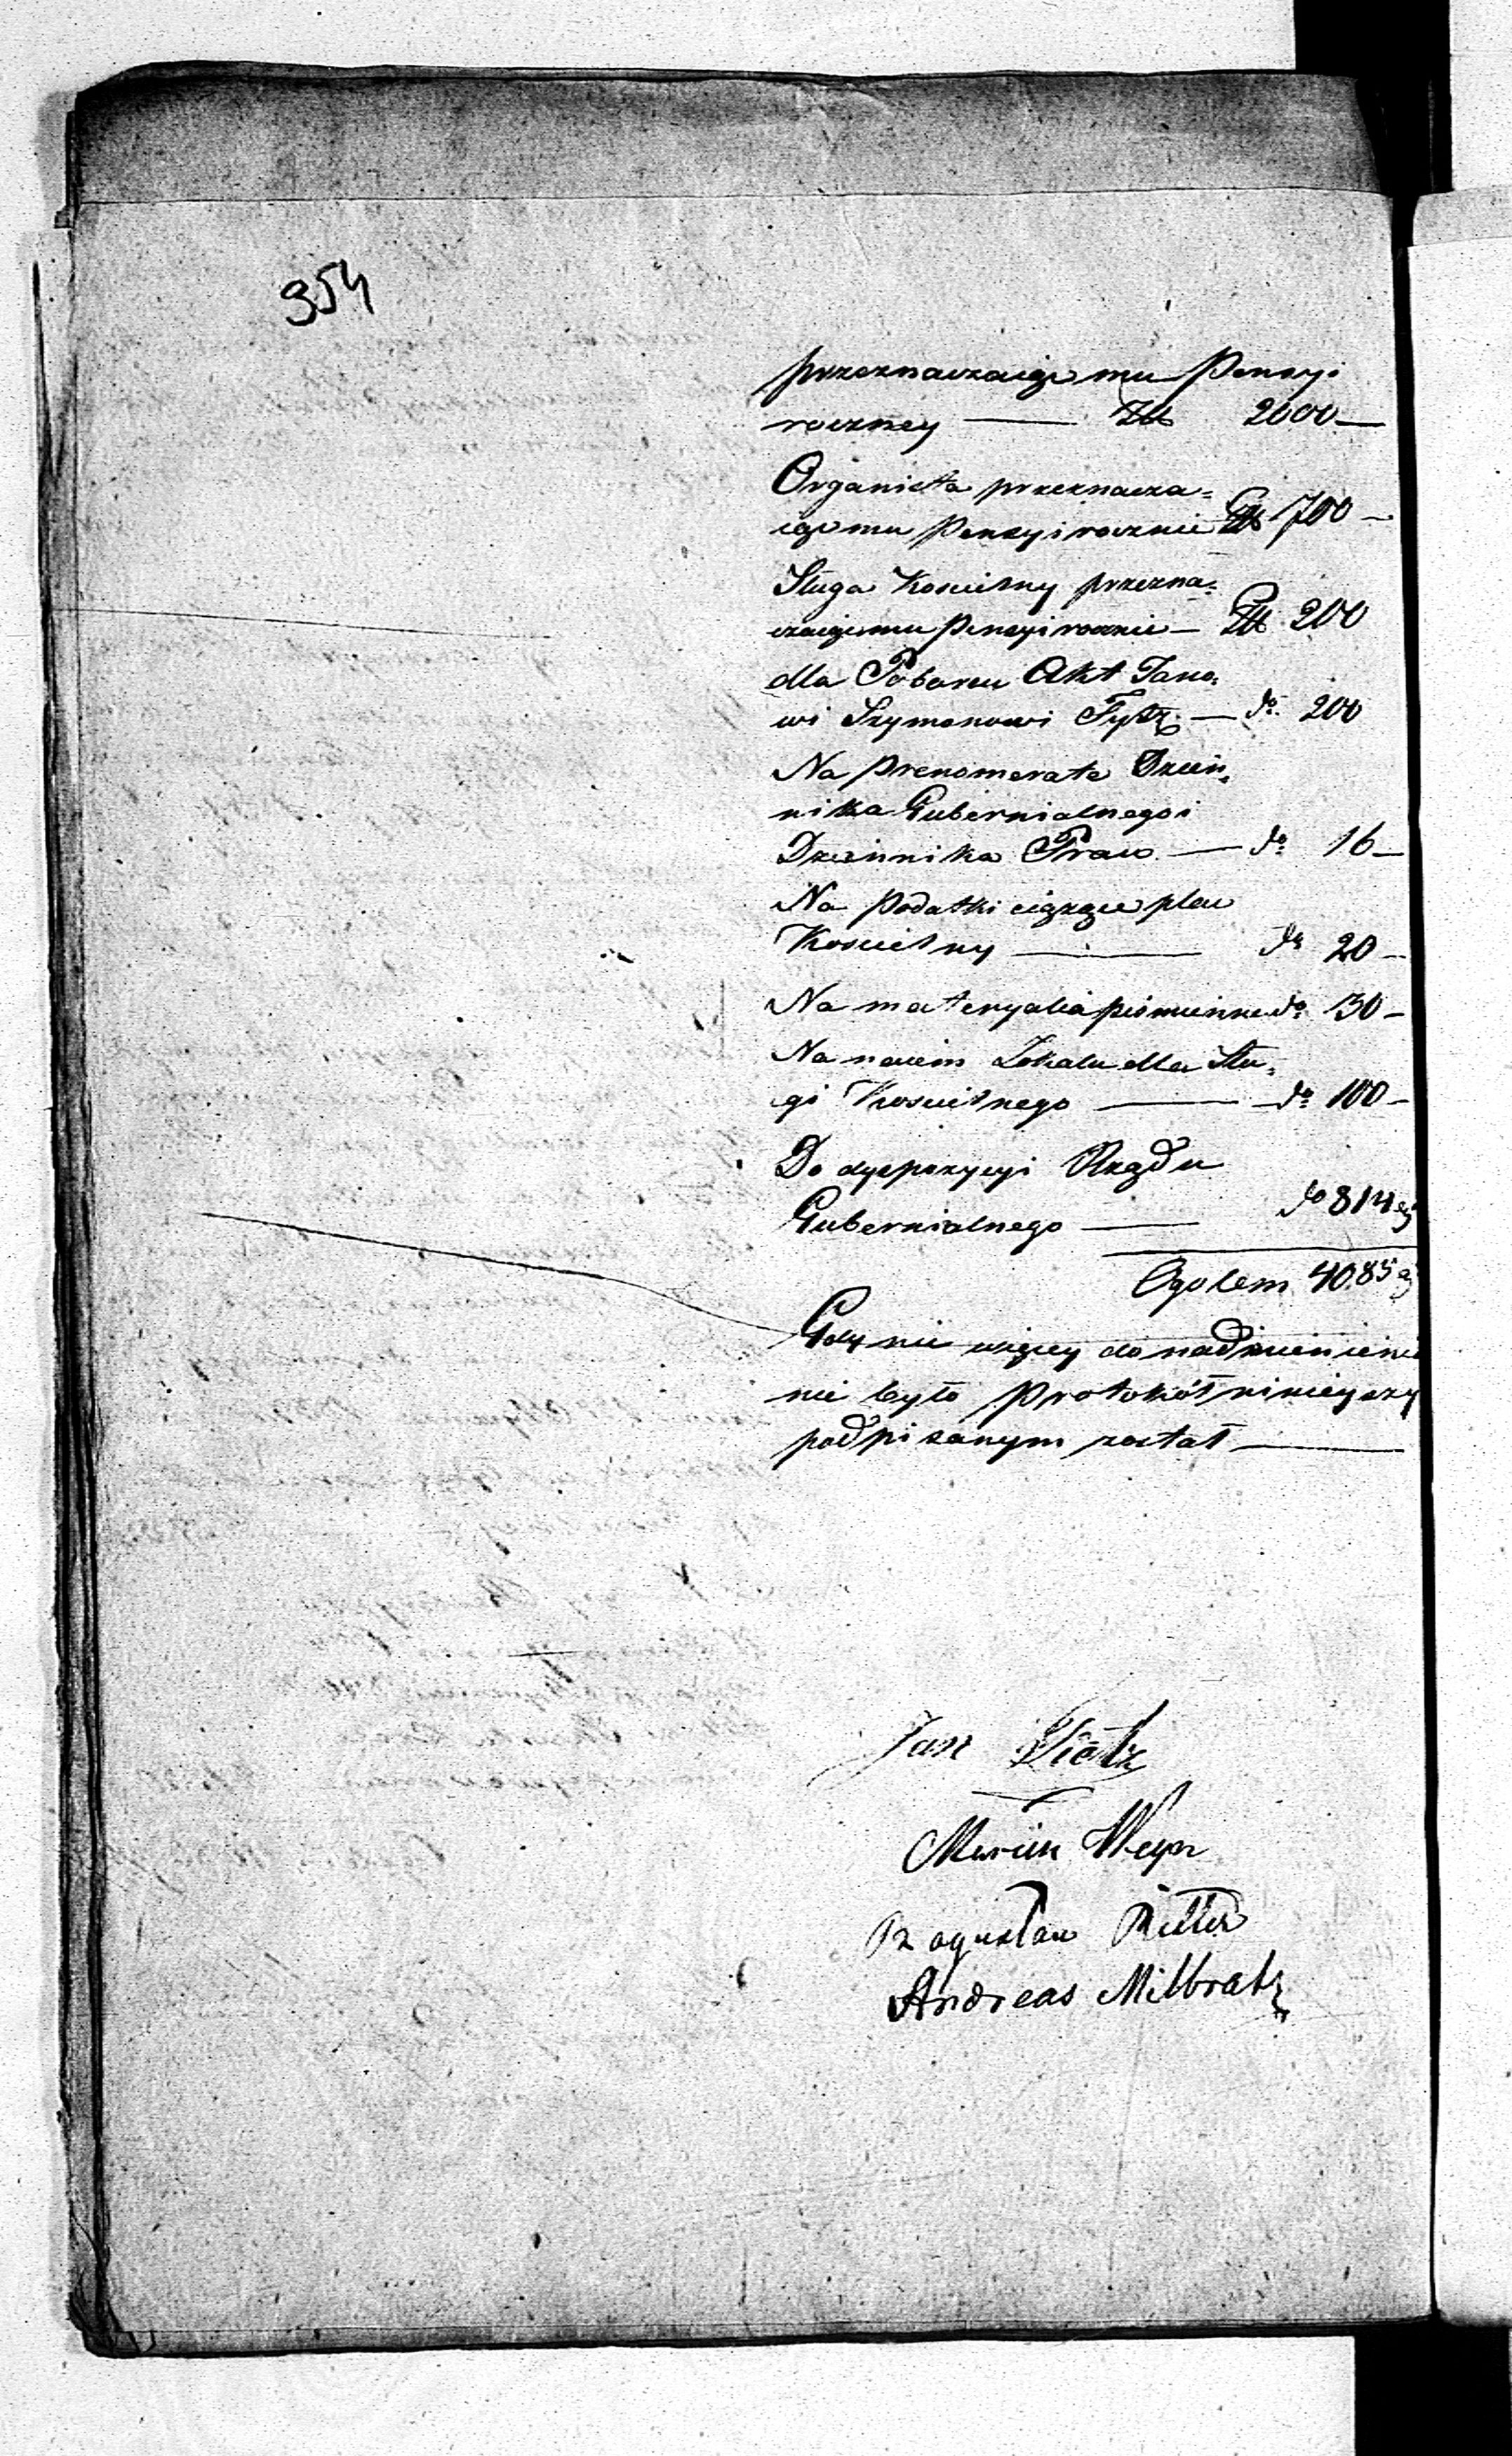 354
przeznaczaią mu Pensyi
roczney — Zł 2000—
Organista przeznacza-
ią mu Pensyi rocznie Zł 700—
Sługa Kościelny przezna-
czaią mu Pensyi rocznie — Zł 200
dla Poborcu Akt Jano-
wi Szymonowi — do 200
Na prenomerate Dzien-
nika Gubernialnego i
Dziennika Praw — do 16—
Na Podatki ciążące plac
Kościelny — do 20—
Na materyalia piśmienne do 30—
Na naiem Lokalu dla Słu-
gi Kościelnego — do 100—
Do dyspozycyi Rządu
Gubernialnego — do 814
Ogolem 4085
Gdy nic więcey do nadmienienia
nie było Protokół ninieyszy
podpisanym został —
Jan
Marcin
Bogusław
Andreas Milbratz